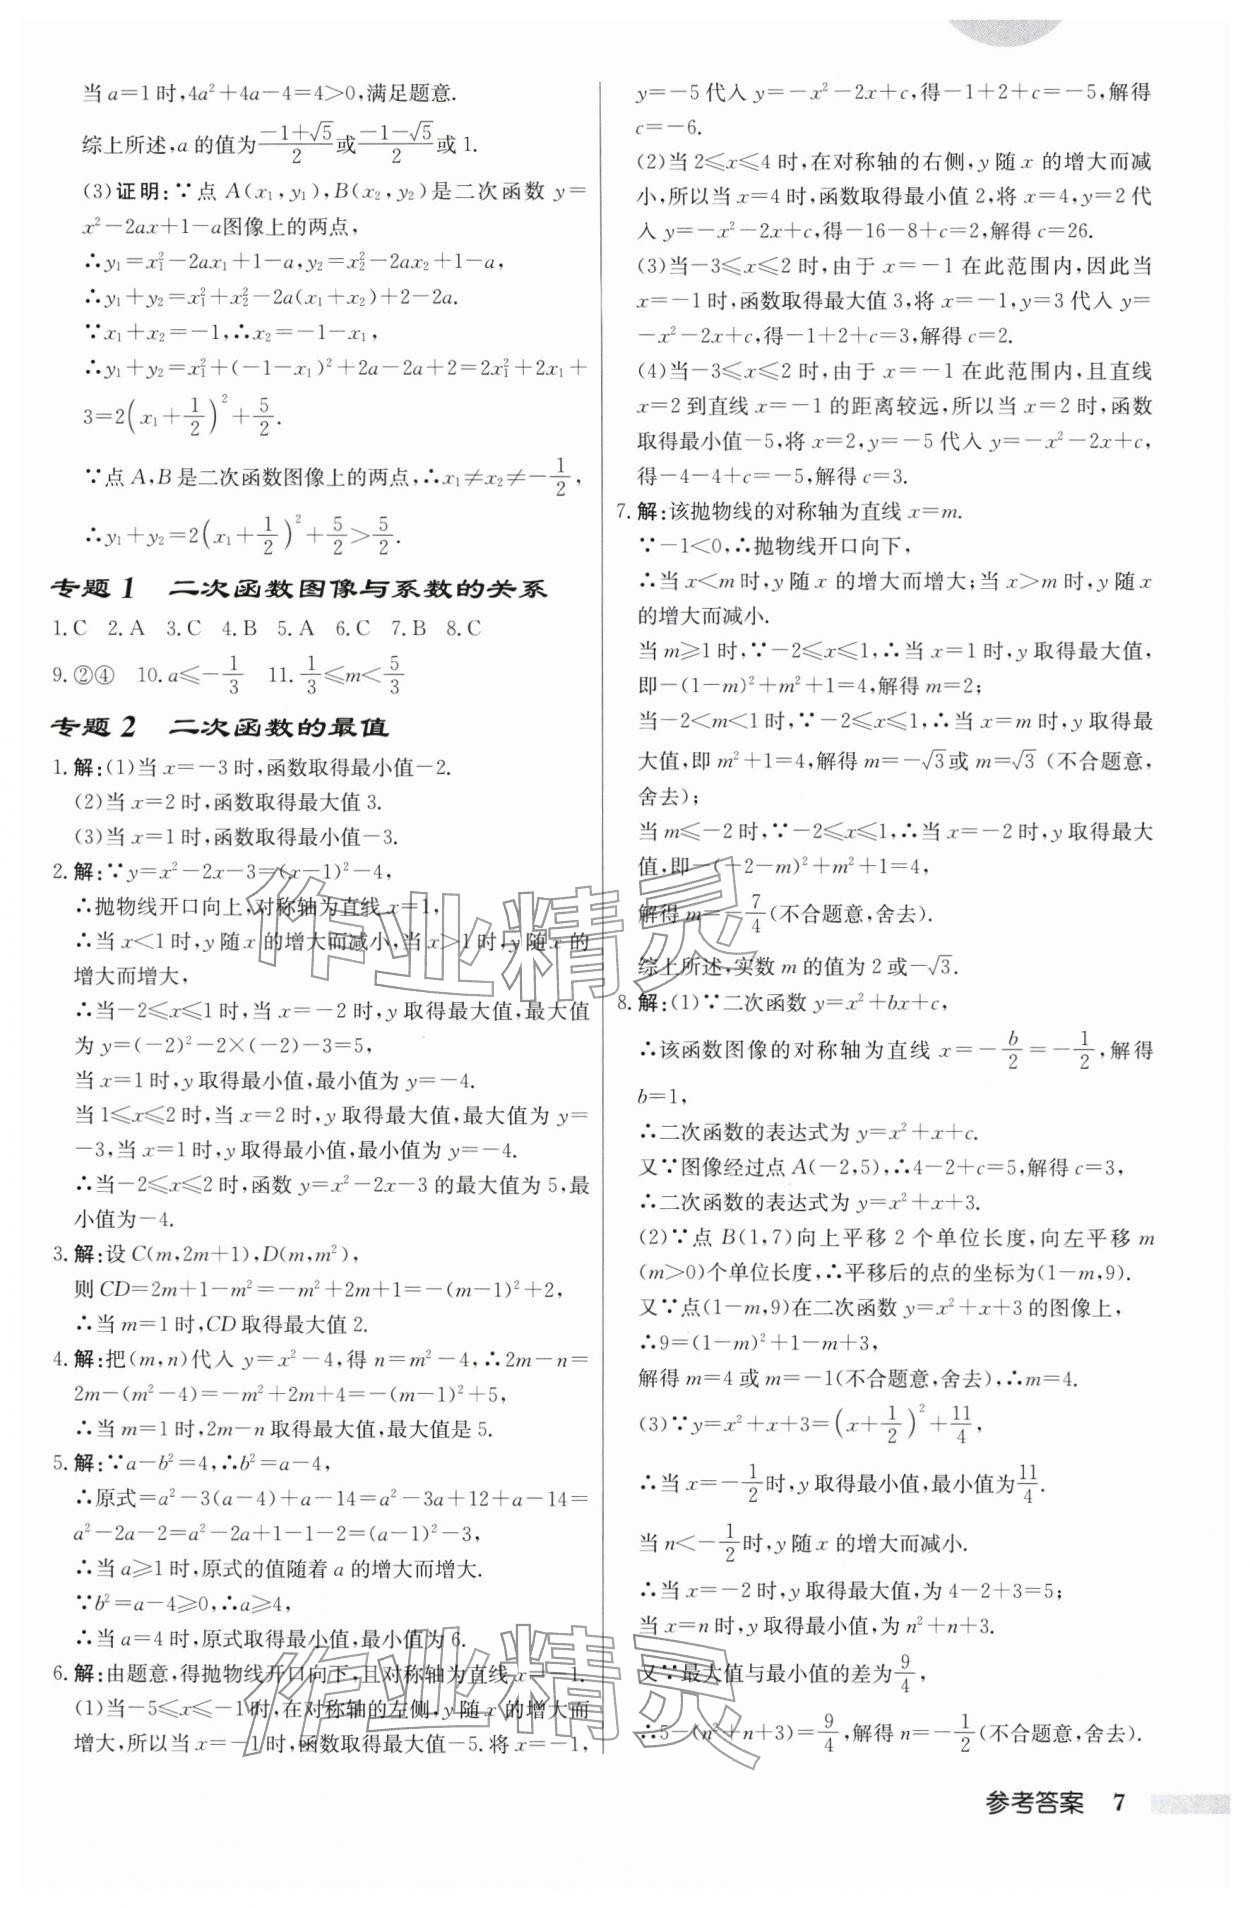 当 a=1 时,4a²+4a-4=4>0,满足题意.
综上所述,a 的值为(-1+√5)/2或(-1-√5)/2或 1.
(3)证明:∵点 A(x₁,y₁),B(x₂,y₂)是二次函数 y=
x²-2ax+1-a图像上的两点,
∴y₁=x₁²-2ax₁+1-a,y₂=x₂²-2ax₂+1-a,
∴y₁+y₂=x₁²+x₂²-2a(x₁+x₂)+2-2a.
∵x₁+x₂=-1,∴x₂=-1-x₁,
∴y₁+y₂=x₁²+(-1-x₁)²+2a-2a+2=2x₁²+2x₁+
3=2(x₁+1/2)²+5/2.
∵点 A,B 是二次函数图像上的两点,∴x₁≠x₂≠-1/2,
∴y₁+y₂=2(x₁+1/2)²+5/2>5/2.
专题 1 二次函数图像与系数的关系
1.C 2.A 3.C 4.B 5.A 6.C 7.B 8.C
9.②④ 10.a≤-1/3 11.1/3≤m<5/3
专题 2 二次函数的最值
1.解:(1)当 x=-3 时,函数取得最小值-2.
(2)当 x=2 时,函数取得最大值 3.
(3)当 x=1 时,函数取得最小值-3.
2.解:∵y=x²-2x-3=(x-1)²-4,
∴抛物线开口向上,对称轴为直线 x=1,
∴当 x<1 时,y 随 x 的增大而减小,当 x>1 时,y 随 x 的
增大而增大,
∴当-2≤x≤1 时,当 x=-2 时,y 取得最大值,最大值
为 y=(-2)²-2×(-2)-3=5,
当 x=1 时,y 取得最小值,最小值为 y=-4.
当 1≤x≤2 时,当 x=2 时,y 取得最大值,最大值为 y=
-3,当 x=1 时,y 取得最小值,最小值为 y=-4.
∴当-2≤x≤2 时,函数 y=x²-2x-3 的最大值为 5,最
小值为-4.
3.解:设 C(m,2m+1),D(m,m²),
则 CD=2m+1-m²=-m²+2m+1=-(m-1)²+2,
∴当 m=1 时,CD 取得最大值 2.
4.解:把(m,n)代入 y=x²-4,得 n=m²-4,∴2m-n=
2m-(m²-4)=-m²+2m+4=-(m-1)²+5,
∴当 m=1 时,2m-n 取得最大值,最大值是 5.
5.解:∵a-b²=4,∴b²=a-4,
∴原式=a²-3(a-4)+a-14=a²-3a+12+a-14=
a²-2a-2=a²-2a+1-1-2=(a-1)²-3,
∴当 a≥1 时,原式的值随着 a 的增大而增大.
∵b²=a-4≥0,∴a≥4,
∴当 a=4 时,原式取得最小值,最小值为 6.
6.解:由题意,得抛物线开口向下,且对称轴为直线 x=-1.
(1)当-5≤x≤-1 时,在对称轴的左侧,y 随 x 的增大而
增大,所以当 x=-1 时,函数取得最大值-5.将 x=-1,
y=-5 代入 y=-x²-2x+c,得-1+2+c=-5,解得
c=-6.
(2)当 2≤x≤4 时,在对称轴的右侧,y 随 x 的增大而减
小,所以当 x=4 时,函数取得最小值 2,将 x=4,y=2 代
入 y=-x²-2x+c,得-16-8+c=2,解得 c=26.
(3)当-3≤x≤2 时,由于 x=-1 在此范围内,因此当
x=-1 时,函数取得最大值 3,将 x=-1,y=3 代入 y=
-x²-2x+c,得-1+2+c=3,解得 c=2.
(4)当-3≤x≤2 时,由于 x=-1 在此范围内,且直线
x=2 到直线 x=-1 的距离较远,所以当 x=2 时,函数
取得最小值-5,将 x=2,y=-5 代入 y=-x²-2x+c,
得-4-4+c=-5,解得 c=3.
7.解:该抛物线的对称轴为直线 x=m.
∵-1<0,∴抛物线开口向下,
∴当 x<m 时,y 随 x 的增大而增大;当 x>m 时,y 随 x
的增大而减小.
当 m≥1 时,∵-2≤x≤1,∴当 x=1 时,y 取得最大值,
即-(1-m)²+m²+1=4,解得 m=2;
当-2<m<1 时,∵-2≤x≤1,∴当 x=m 时,y 取得最
大值,即 m²+1=4,解得 m=-√3或 m=√3 (不合题意,
舍去);
当 m≤-2 时,∵-2≤x≤1,∴当 x=-2 时,y 取得最大
值,即-(-2-m)²+m²+1=4,
解得 m=-7/4(不合题意,舍去).
综上所述,实数 m 的值为 2 或-√3.
8.解:(1)∵二次函数 y=x²+bx+c,
∴该函数图像的对称轴为直线 x=-b/2=-1/2,解得
b=1,
∴二次函数的表达式为 y=x²+x+c.
又∵图像经过点 A(-2,5),∴4-2+c=5,解得 c=3,
∴二次函数的表达式为 y=x²+x+3.
(2)∵点 B(1,7)向上平移 2 个单位长度,向左平移 m
(m>0)个单位长度,∴平移后的点的坐标为(1-m,9).
又∵点(1-m,9)在二次函数 y=x²+x+3 的图像上,
∴9=(1-m)²+1-m+3,
解得 m=4 或 m=-1(不合题意,舍去),∴m=4.
(3)∵y=x²+x+3=(x+1/2)²+11/4,
∴当 x=-1/2时,y 取得最小值,最小值为11/4.
当 n<-1/2时,y 随 x 的增大而减小.
∴当 x=-2 时,y 取得最大值,为 4-2+3=5;
当 x=n 时,y 取得最小值,为 n²+n+3.
又∵最大值与最小值的差为9/4,
∴5-(n²+n+3)=9/4,解得 n=-1/2(不合题意,舍去).
参考答案 7
作业精灵
作业精灵